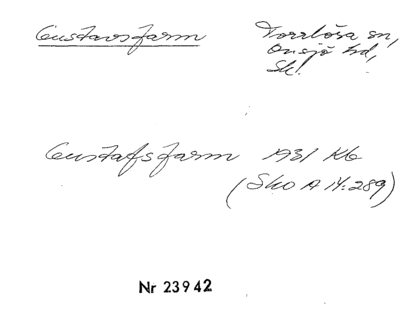 Gustavsfarm
Torrlösa sn,
Onsjö hd,
Sk.
Gustafsfarm 1931 Kb
(SkO A 14:289)
Nr 23942